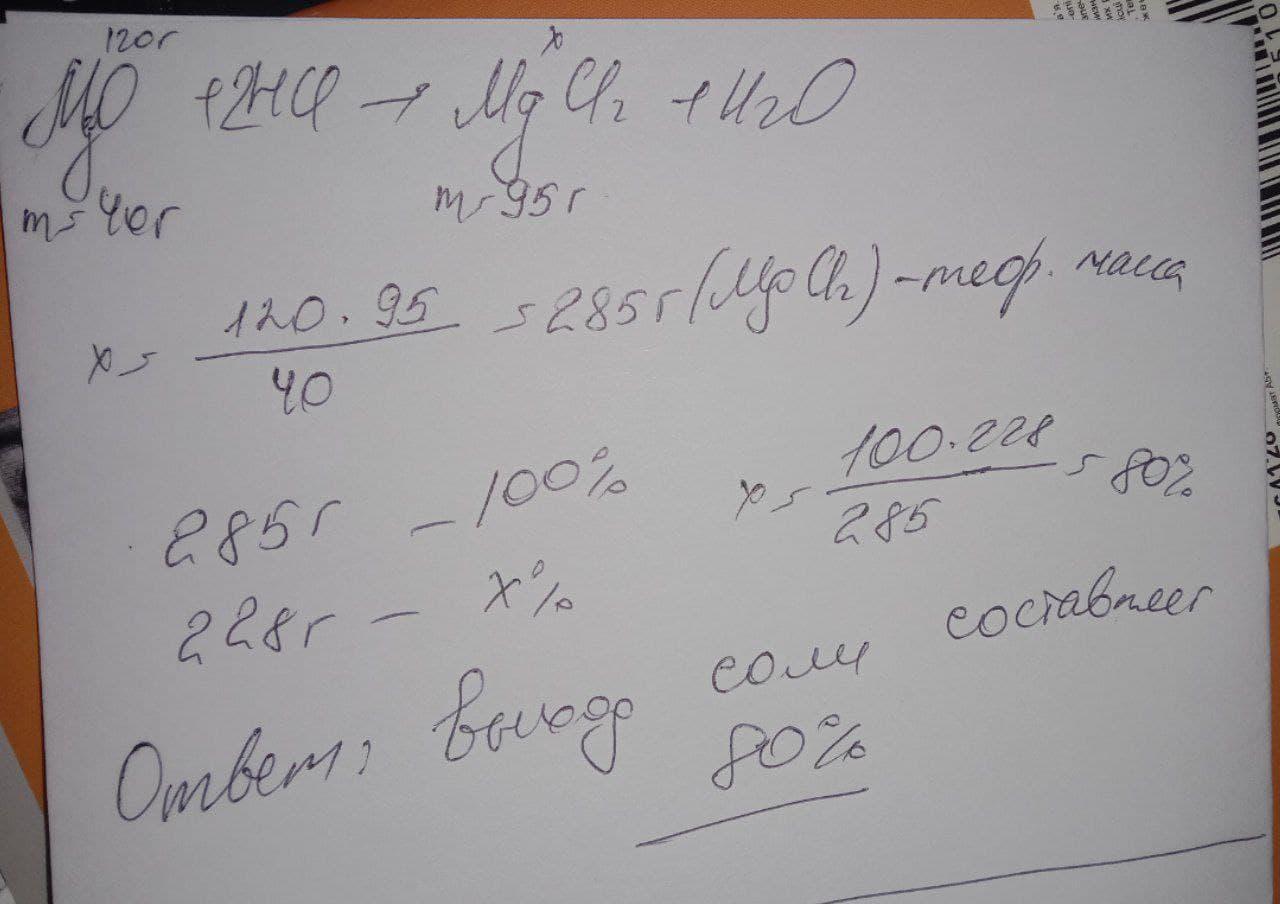 120г x
MgO + 2HCl → MgCl2 + H2O
m = 40г m = 95г
x = 120 · 95 / 40 = 285г (MgCl2) - теор. масса
285г - 100% x = 100 · 228 / 285 = 80%
228г - x%
Ответ: выход соли составляет
80%